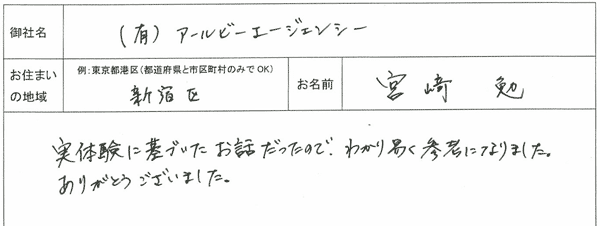 御社名 (有) アールビーエージェンシー
お住まいの地域 例:東京都港区(都道府県と市区町村のみでOK) 新宿区 お名前 宮崎 勉
実体験に基づいたお話だったので、わかり易く参考になりました。
ありがとうございました。